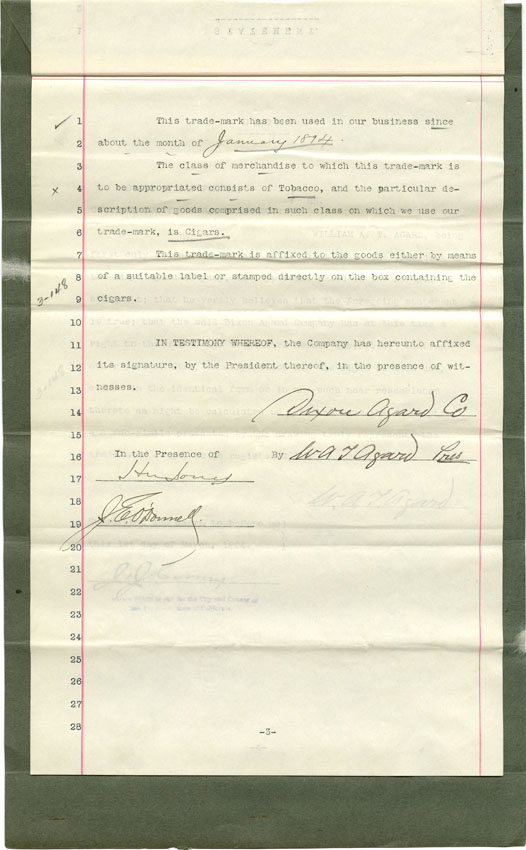 STATEMENT
1 This trade-mark has been used in our business since
2 about the month of January 1894.
3 The class of merchandise to which this trade-mark is
x 4 to be appropriated consists of Tobacco, and the particular de-
5 scription of goods comprised in such class on which we use our
6 trade-mark, is Cigars.
7 This trade-mark is affixed to the goods either by means
8 of a suitable label or stamped directly on the box containing the
3-148 9 cigars.
10
11 IN TESTIMONY WHEREOF, the Company has hereunto affixed
12 its signature, by the President thereof, in the presence of wit-
13 nesses.
14 Dixon Agard Co
15
16 In the Presence of By W A T Agard Pres
17 Jones
18
19 J. E. O'Donnell
20
21
22
23
24
25
26
27
28 -3-